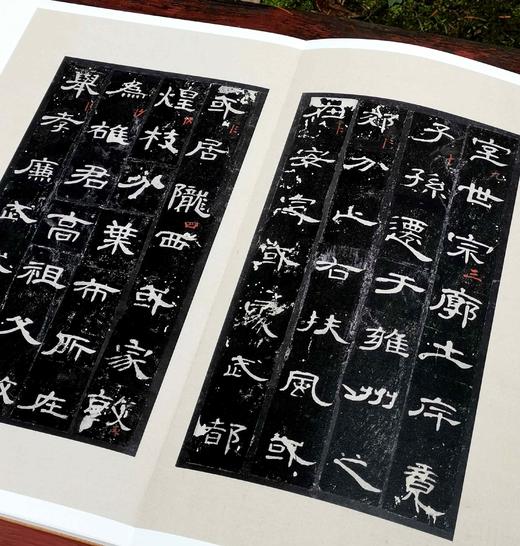 室世宗廓土斥竟
子孫遷于雍州之
郊分止右扶風或
在安定或處武都
或居隴西或家敦
煌枝分葉布所在
為雄君高祖父敏
舉孝廉武